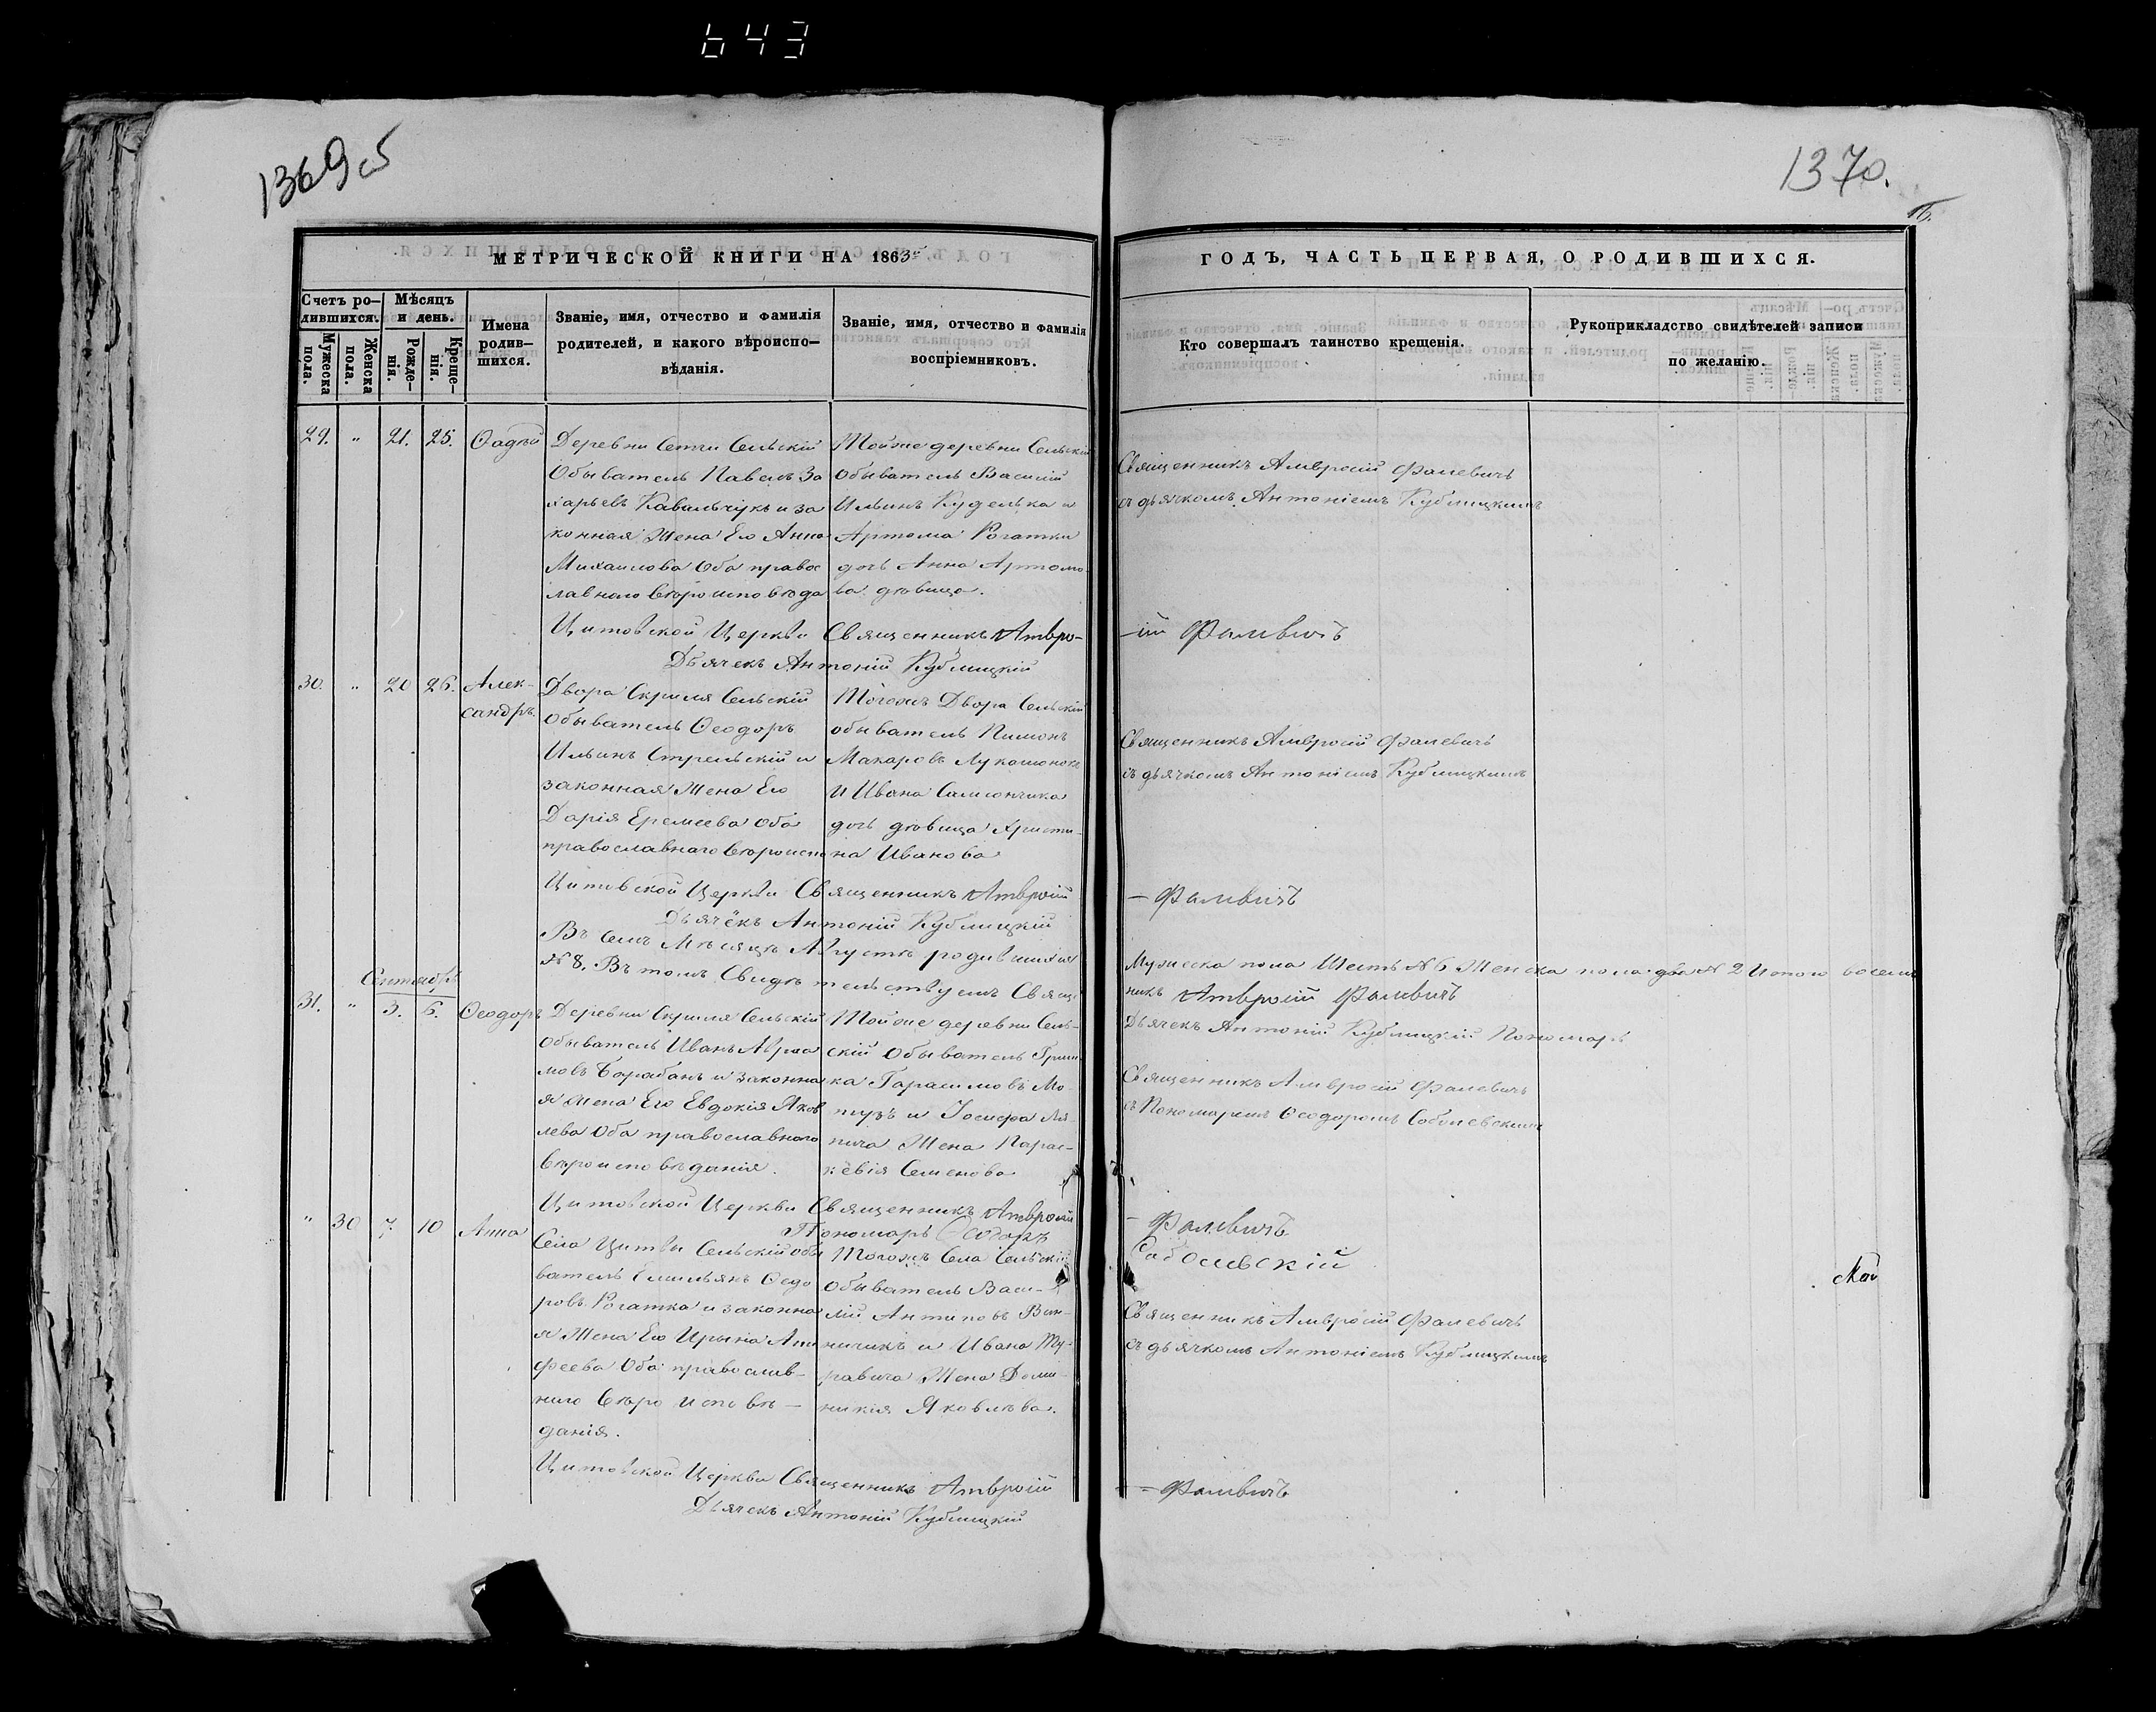 643
1369 об
1370.
МЕТРИЧЕСКОЙ КНИГИ НА 1863й
ГОДЪ, ЧАСТЬ ПЕРВАЯ, О РОДИВШИХСЯ.
Счетъ ро-
дившихся.
Мужеска
пола.
Женска
пола.
Мѣсяцъ
и день.
Рожде-
нія.
Креще-
нія.
Имена
родив-
шихся.
Званіе, имя, отчество и фамилія
родителей, и какого вѣроиспо-
вѣданія.
Званіе, имя, отчество и фамилія
воспріемниковъ.
Кто совершалъ таинство крещенія.
Рукоприкладство свидѣтелей записи
по желанію.
29. " 21. 25. Ѳадѣй
Деревни Сельскій
Обыватель Павелъ За
харьевъ Ковальчукъ и за
конная Жена Его Анна
Михаилова Оба правос
лавнаго вѣроисповѣда
Тойже деревни Сельскій
обыватель Василій
Ильинъ Куделька и
Артома Рогатки
дочь Анна Артомо-
ва дѣвица.
Священникъ Амвросій Фалевичъ
съ дьячкомъ Антоніемъ Кублицкимъ
Цитовской Церкви Священникъ Амвро-
-ій Фалевичъ
Дьячекъ Антоній Кублицкій
30. " 20 26. Алек-
сандръ.
Двора Скриля Сельскій
Обыватель Ѳеодоръ
Ильинъ Стрельскій и
законная Жена Его
Дарія Еремеева Оба
православнаго вѣроиспо
Тогожъ Двора Сельскій
обыватель Пимонъ
Макаровъ Лукашонокъ
и Ивана
дочь дѣвица Христи-
на Иванова
Священникъ Амвросій Фалевичъ
съ дьячкомъ Антоніемъ Кублицкимъ
Цитовской Церкви Священникъ Амвросій
- Фалевичъ
Дьячёкъ Антоній Кублицкій
Въ семъ Мѣсяцѣ Августѣ родившихся
Мужеска пола Шесть № 6 Женска пола два № 2 Итого восемь
№ 8. Въ томъ Свидѣтельствуемъ Свяще
никъ Амвросій Фалевичъ
Дьячекъ Антоній Кублицкій Пономарь
Сентябрь
31. " 3. 6. Ѳеодоръ
Деревни Скриля Сельскій
Обыватель Иванъ Абраа
мовъ Барабанъ и законна
я жена Его Евдокія Яков
лева Оба православнаго
вѣроисповѣданія.
Тойже деревни Сель-
скій Обыватель Гриш
ка Гарасимовъ Мо-
тузъ и Іосифа Ля-
пича Жена Парас-
кёвія Семенова
Священникъ Амвросій Фалевичъ
съ Пономаремъ Ѳеодоромъ Соболевскимъ
Цитовской Церкви Священникъ Амвросій
- Фалевичъ
Пономарь Ѳеодоръ
Соболевскій
" 30 7. 10 Анна
Села Цитвы Сельскій обы
ватель Емильянъ Ѳедо
ровъ Рогатка и законна
я Жена Его Ирына Ати
феева Оба православ-
наго вѣроисповѣ-
данія.
Тогожъ Села Сельскій
Обыватель Васи-
лій Антиповъ Вин-
ничикъ и Ивана Му-
равича Жена Доми-
никія Яковлева.
Священникъ Амвросій Фалевичъ
съ дьячкомъ Антоніемъ Кублицкимъ
Цитовской Церкви Священникъ Амвросій
- Фалевичъ
Дьячекъ Антоній Кублицкій